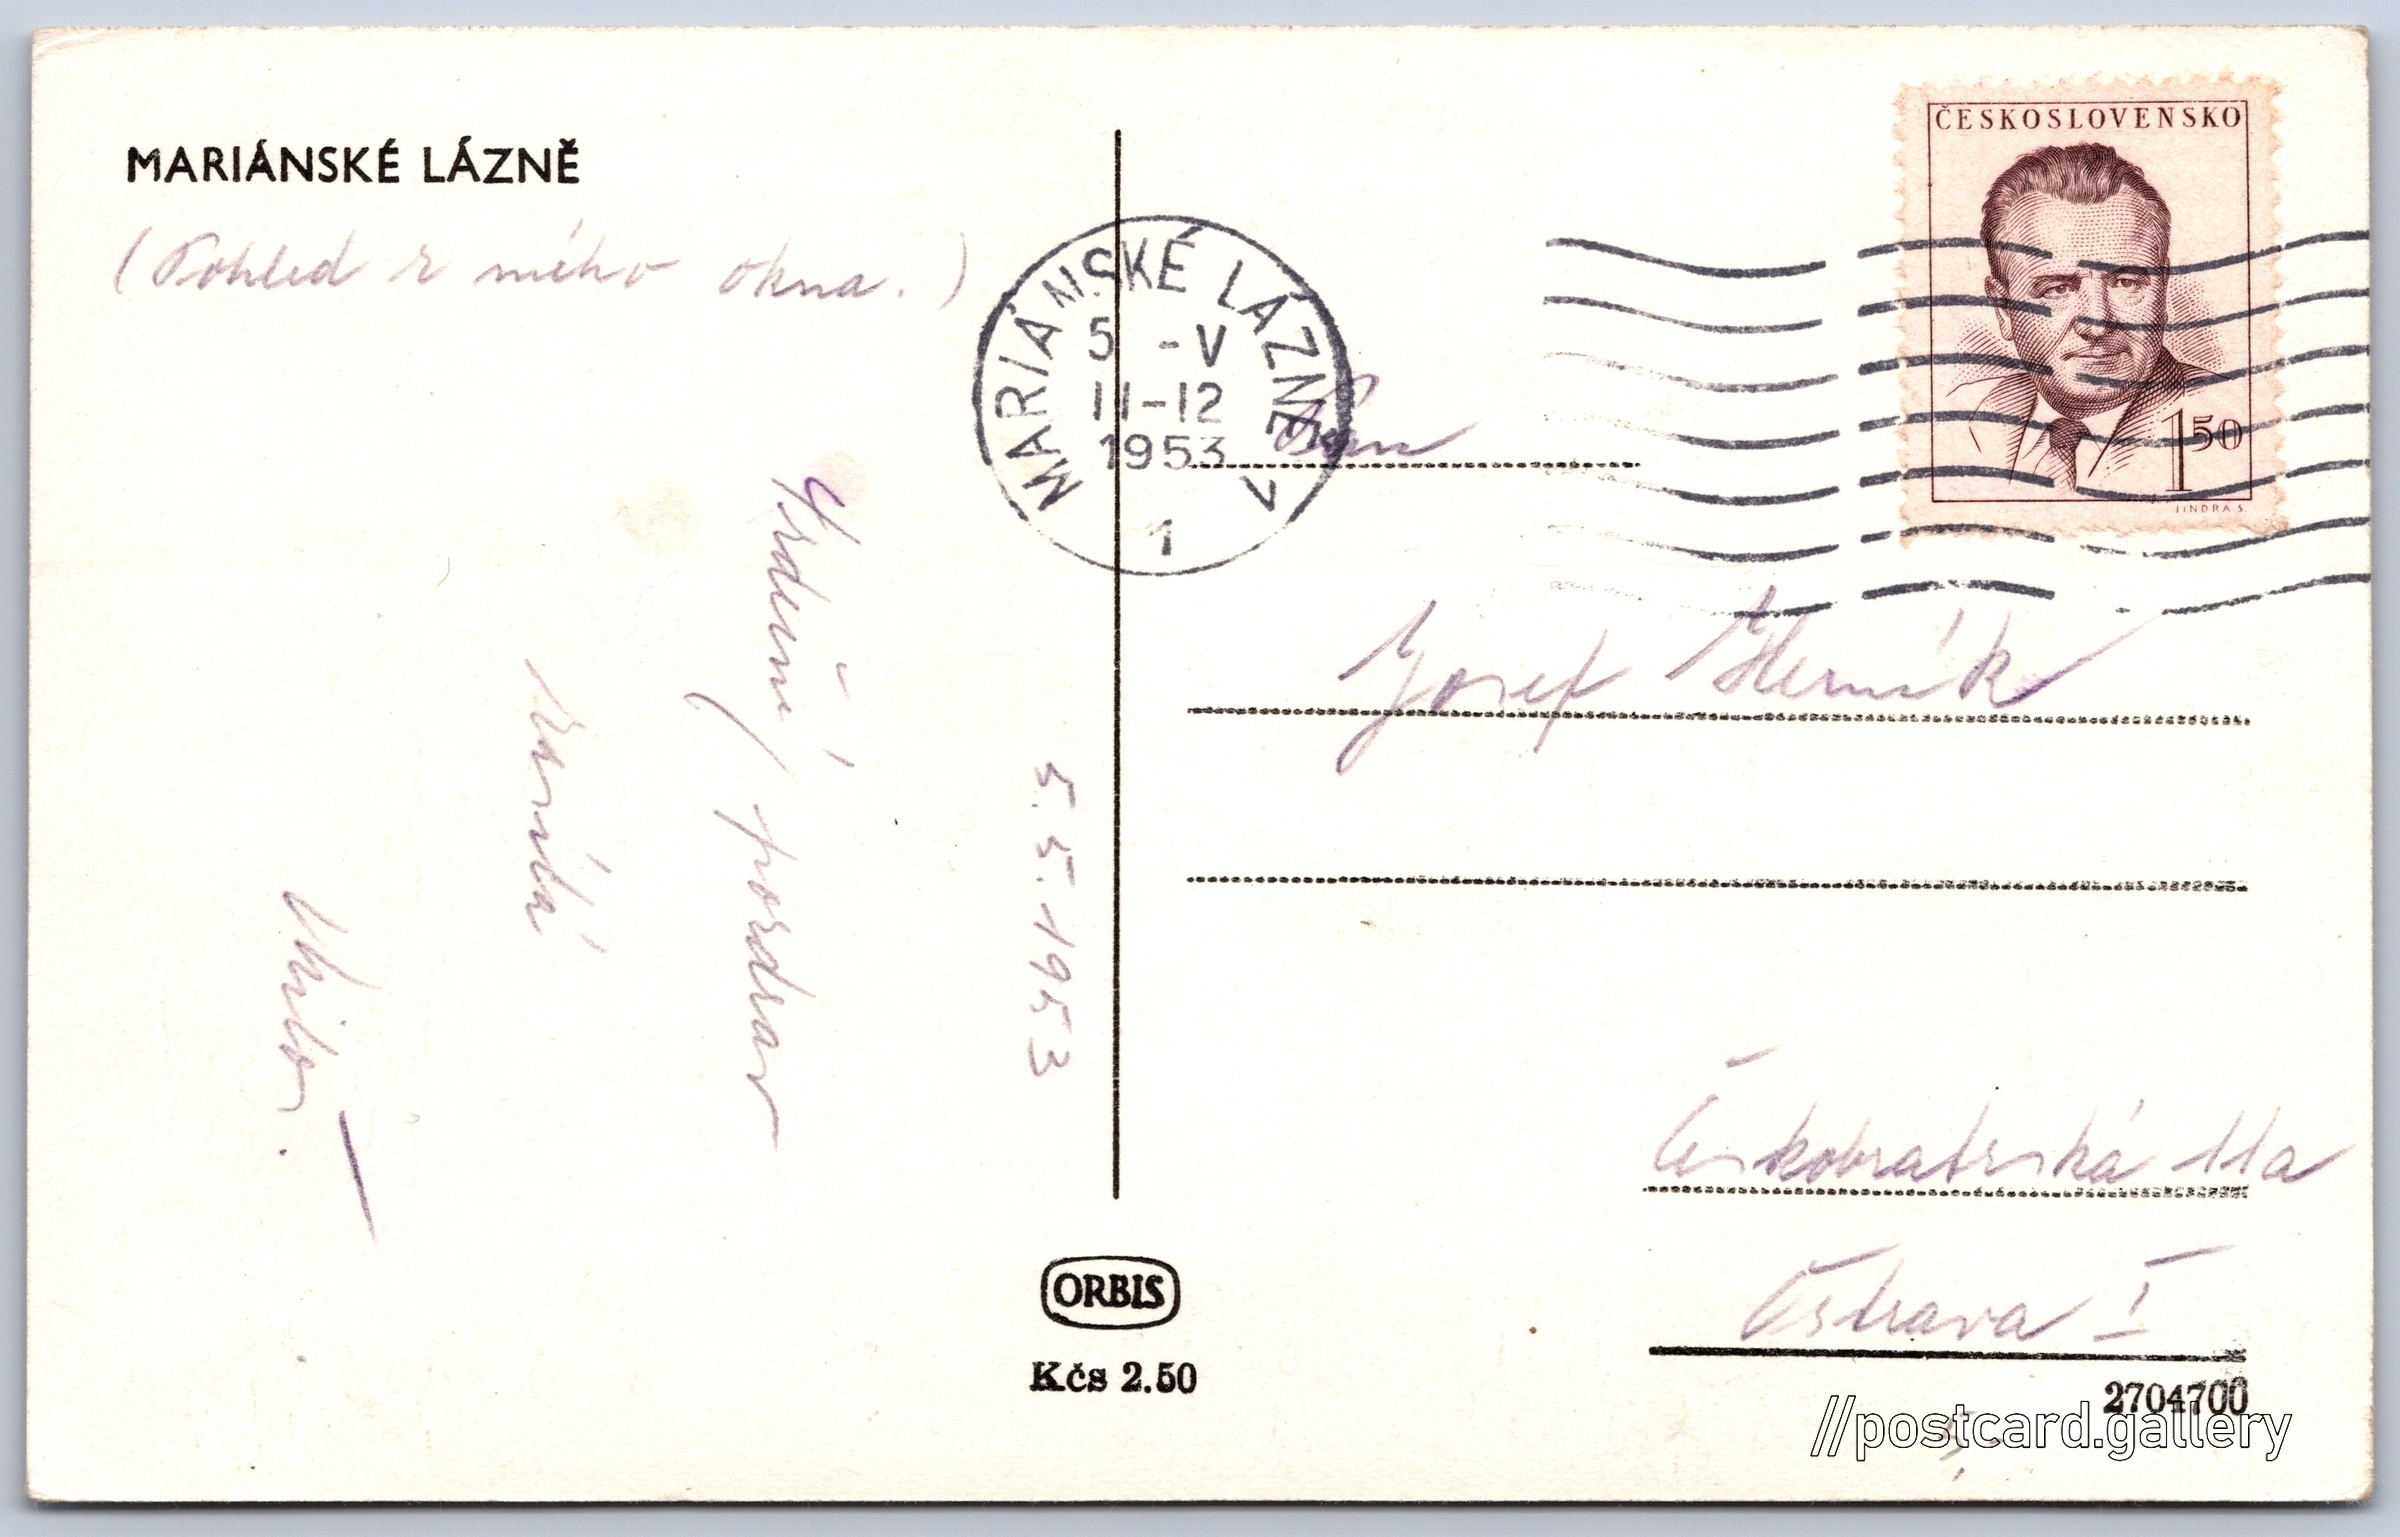 MARIÁNSKÉ LÁZNĚ
(Pohled z mého okna.)
5.5.1953
Srdečný pozdrav
zasílá
MARIÁNSKÉ LÁZNĚ
5 -V
11-12
1953
1
ČESKOSLOVENSKO
1 50
JINDRA S.
Pan
Josef
Českobratrská 11a
Ostrava I
ORBIS
Kčs 2.50
2704700
//postcard.gallery